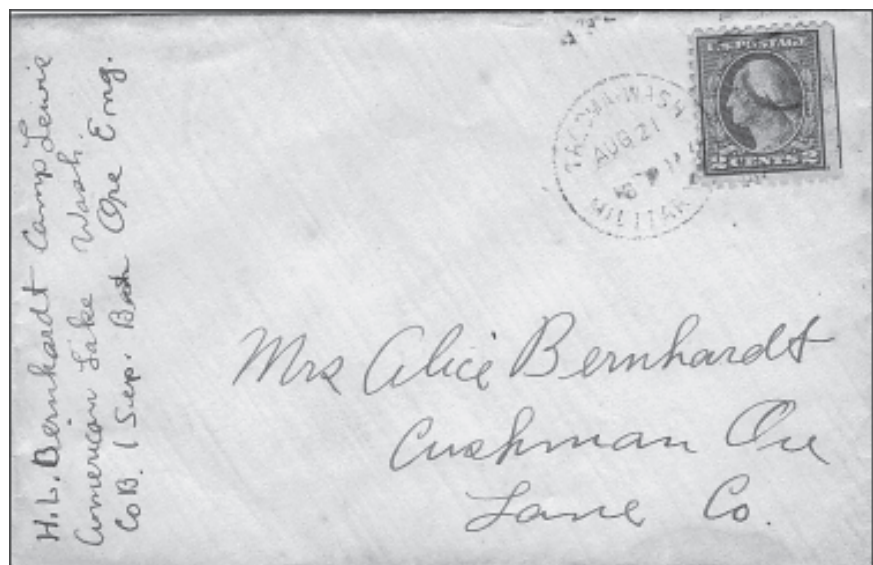 H.L. Bernhardt Camp Lewis
American Lake Wash.
Co B. 1 Sep. Batn Ore Eng.
TACOMA WASH
AUG 21
MILITARY
U.S. POSTAGE
2 CENTS 2
Mrs Alice Bernhardt
Cushman Ore
Lane Co.